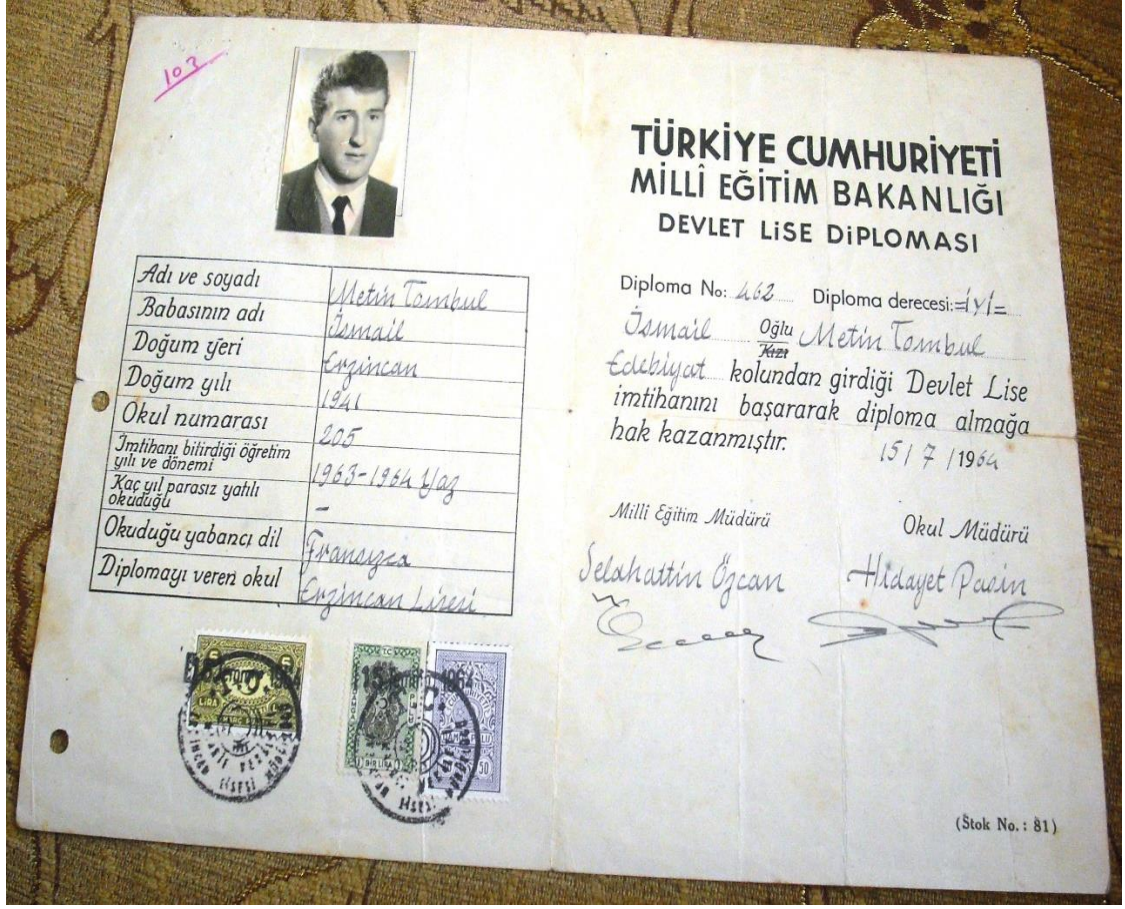 103
Adı ve soyadı Metin Tombul
Babasının adı İsmail
Doğum yeri Erzincan
Doğum yılı 1941
Okul numarası 205
İmtihanı bitirdiği öğretim
yılı ve dönemi 1963-1964 Yaz
Kaç yıl parasız yatılı
okuduğu -
Okuduğu yabancı dil Fransızca
Diplomayı veren okul Erzincan Lisesi
LİRA
BİR LİRA
50
1964
LİSESİ
TÜRKİYE CUMHURİYETİ
MİLLÎ EĞİTİM BAKANLIĞI
DEVLET LİSE DİPLOMASI
Diploma No: 462 Diploma derecesi: =iyi=
İsmail Oğlu Metin Tombul
Kızı
Edebiyat kolundan girdiği Devlet Lise
imtihanını başararak diploma almağa
hak kazanmıştır.
15/7/1964
Millî Eğitim Müdürü Okul Müdürü
Selahattin Özcan Hidayet Pasin
(Stok No.: 81)